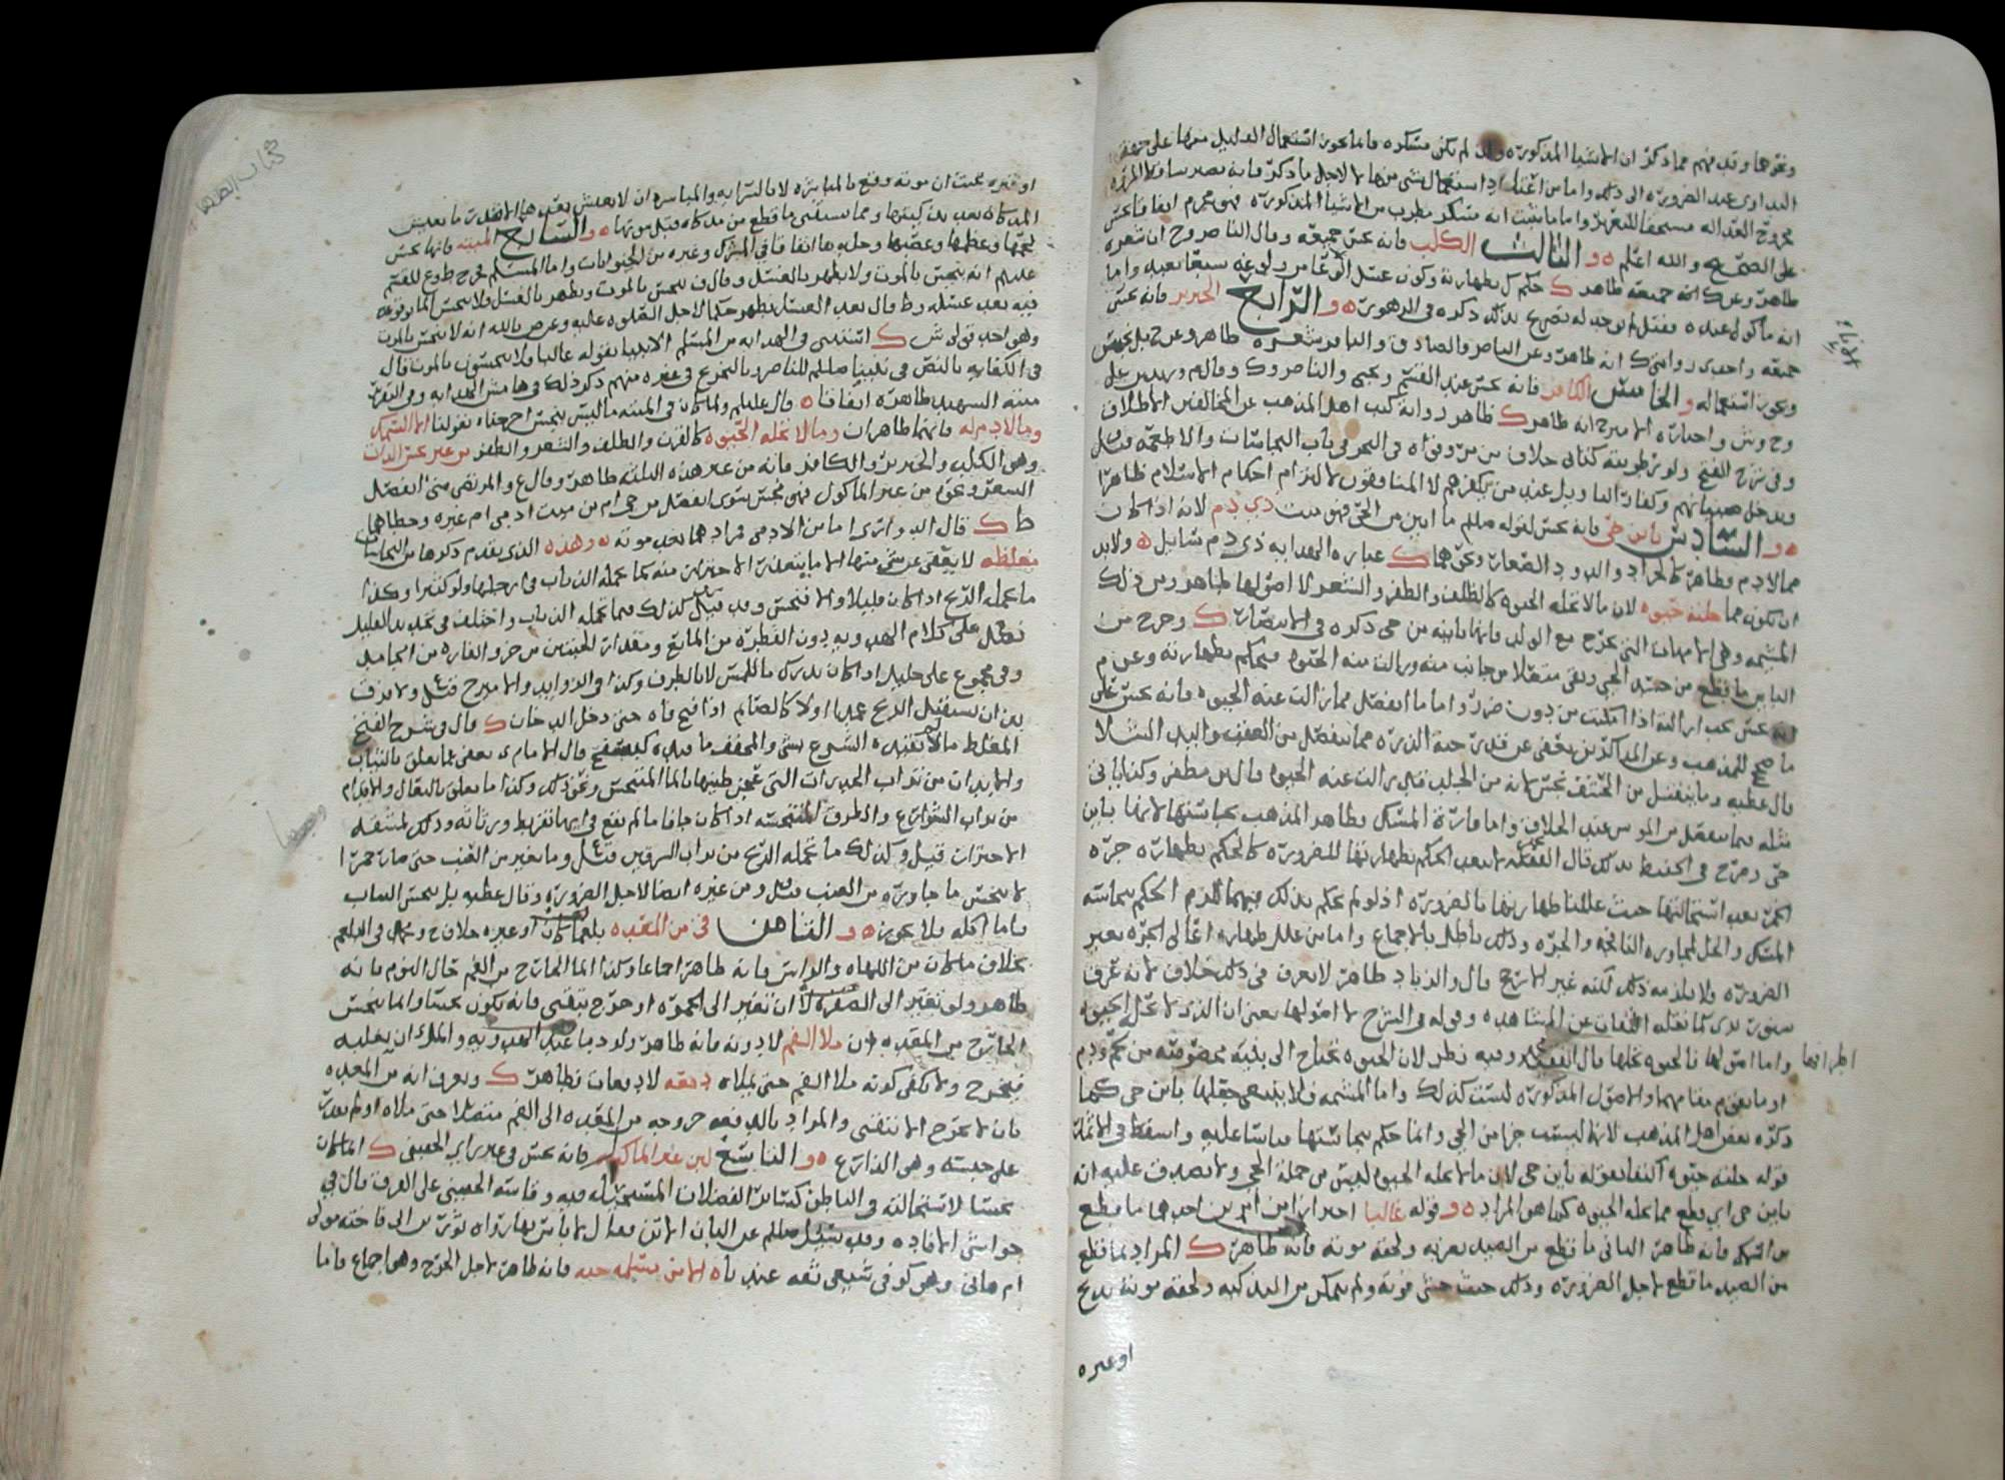 ونحوهما وقد فهم مما ذكر ان الاشيا المذكوره ولو لم تكن مسكره فانما يجوز استعمال القليل منها على جهة
التداوي عند الضرورة الى ذلك واما من اعتاد استعمال شي منها لا لاجل ما ذكر فانه يصير ساقط المروه
مجروح العداله مستحقا للتعزير واما ما ثبت انه مسكر مطرب من الاشيا المذكوره فهو محرم اتفاقا نجس
على الصحيح والله اعلم ه و الثالث الكلب فانه نجس جميعه وقال الناصر وح ان شعره
طاهر وعن ك انه جميعه طاهر ك حكم كل بطهارته وكون غسل الاناء من ولوغه سبعا تعبد واما
انه ماكول عنده فنقل لم يوجد له تصريح بذلك ذكره في الزهور ه و الرابع الخنزير فانه نجس
جميعه واحدى روايتي ك انه طاهر وعن الناصر والصادق والباقر شعره طاهر وعن ح بل نجس
ويجوز استعماله و الخامس الكافر فانه نجس عند القسم ويحيى والناصر وك وقال م وزيد بن علي
وح وش واختاره الامير ح انه طاهر ك ظاهر رواية كتب اهل المذهب عن المخالفين الاطلاق
وفي شرح الفتح ولو رطوبته كتابي خلاف من مر وقواه في البحر في باب النجاسات والاطعمه وقيل
ويدخل صبيانهم وكفار التاويل عند من يكفرهم لا المنافقون لالتزام احكام الاسلام ظاهرا
ه و السادس باين حي فانه نجس لقوله صللم ما ابين من الحي فهو ميت ذي دم لانه اذا كان
مما لا دم له فطاهر كالجراد والدود الصغار ونحوهما ك عباره الهدايه ذي دم سايل ه ولا بد
ان يكون مما حلته حيوه لان ما لا تحله الحيوه كالظلف والظفر والشعر لا اصولها طاهر ومن ذلك
المشيمه وهي الامهات التي تخرج مع الولد فانها باينه من حي ذكره في الانتصار ك وخرج من
الباين ما قطع من جسد الحي وبقي متصلا من جانب منه وزالت منه الحيوه فيحكم بطهارته وعن م
انه نجس تجب ازالته اذا امكنت من دون ضرر واما ما انفصل مما زالت عنه الحيوه فانه نجس على
ما صحح للمذهب وعن المذاكرين يعفى عن قدر حبة الذره مما ينفصل من العقب واليد الشلا
قال عطيه وما ينفصل من المختنق نجس لانه من الجلد قد زالت عنه الحيوه قال ابن مظفر وكذا ياتي
مثله فيما ينفصل من الموس عند الحلاق واما فارة المسك فظاهر المذهب نجاستها لانها باين
حي وصرح في الحفيظ بذلك قال الفقيه لا يبعد الحكم بطهارتها للضرورة كالحكم بطهارة جرة
الخمر بعد استحالتها حيث عللنا طهارتها بالضرورة اذ لو لم نحكم بذلك فيهما للزم الحكم بنجاسة
المسك والخل لمجاورة النافجه والجره وذلك باطل بالاجماع واما من علل طهارة اعالي الجره بغير
الضرورة فلا يلزمه ذلك لكنه غير الارجح قال والزباد طاهر لا يعرف في ذلك خلاف لانه عرق
سنور بري كما نقله الثقات عن المشاهده وقوله في الشرح لا اصولها يعني ان الذي لا تحل الحيوه
اطرافها واما اصولها فالحيوه تحلها قال الفقيه وفيه نظر لان الحيوه تحتاج الى بنية مخصوصه من لحم ودم
او ما يقوم مقامهما والاصول المذكوره ليست كذلك واما المشيمه فلا ينبغي جعلها باين حي كما
ذكره بعض اهل المذهب لانها ليست جزا من الحي وانما حكم بنجاستها قياسا عليه واسقط في الاثمار
قوله حلته حيوه اكتفا بقوله باين حي لان ما لا تحله الحيوه ليس من جملة الحي ولا يصدق عليه انه
باين حي اي قطع مما تحله الحيوه كما هو المراد ه و قوله غالبا احترازا من امرين احدهما ما قطع
من السمك فانه طاهر الثاني ما قطع من الصيد بضربة ولحقه موته فانه طاهر ك المراد بما قطع
من الصيد ما قطع لاجل الضرورة وذلك حيث خشي فوته ولم يتمكن من التذكيه ولحقه موته بذبح
او غيره
الاناء
كتاب الطهاره
او غيره بحيث ان موته وقع بالمباشره لا بالسرايه والمباشره ان لا يعيش بعدها الا قدر ما يعيش
المذكاه بعد تذكيتها ومما يستثنى ما قطع من مذكاه قبل موتها ه و السابع الميته فانها نجس
لحمها وعظمها وعصبها وجلدها اتفاقا في المشرك وغيره من الحيوانات واما المسلم فخرج ط وع للقسم
عليلم انه ينجس بالموت ولا يطهر بالغسل وقال ف ينجس بالموت ويطهر بالغسل فلا ينجس الما بوقوعه
فيه بعد غسله وط قال بعد الغسل يطهر حكما لاجل الصلوه عليه وعن ص بالله انه لا ينجس بالموت
وهو احد قولي ش ك استثنى في الهدايه من المسلم الانبيا بقوله غالبا فلا ينجسون بالموت قال
في الكفايه بالنص في نبينا صللم للناصر وبالتخريج في غيره منهم ذكر ذلك في هامش الهدايه وفي التقرير
ميتة الشهيد طاهره اتفاقا ه قال عليلم ولما كان في الميته ما ليس بنجس اخرجناه بقولنا الا السمك
وما لا دم له فانهما طاهران وما لا تحله الحيوه كالقرن والظلف والشعر والظفر من غير نجس الذات
وهو الكلب والخنزير والكافر فانه من غير هذه الثلثه طاهر وقال ع والمرتضى متى انفصل
الشعر ونحوه من غير الماكول فهو نجس سوى انفصل من حي ام من ميت ادمي ام غيره وخطاهما
ط ك قال الدواري اما من الادمي فمرادهما بعد موته ه و هذه الذي تقدم ذكرها من النجاسات
مغلظه لا يعفى عن شي منها الا ما يتعذر الاحتراز منه كما يحمله الذباب في ارجلها ولو كثر وكذا
ما تحمله الريح اذا كان قليلا والا فنجس وقد قيل كذلك فيما تحمله الذباب واختلف في تحديد القليل
فقيل على كلام الهدويه دون القطره من المايع ومقدار الحبتين من خرو الفاره من الجامد
وفي مجموع علي خليل اذا كان يدرك باللمس لا بالطرف وكذا في الزوايد والامير ح قيل ولا فرق
بين ان يستقبل الريح عمدا اولا كالصايم اذا فتح فاه حتى دخل الدخان ك قال في شرح الفتح
المغلظ ما لا تقيده الشرع بشي والمخفف ما قيده كسفح قال الامام ي يعفى عما تعلق بالثياب
والابدان من تراب الجدرات التي عجن طينها بالما المتنجس ونحو ذلك وكذا ما تعلق بالنعال والاقدام
من تراب الشوارع والطرق المتنجسه اذا كان جافا ما لم يقع في ايهما تفريط ورثاثه وذلك لمشقة
الاحتراز قيل وكذلك ما تحمله الريح من تراب السرقين قيل وما تغير من العنب حتى صار خمرا
لا ينجس ما جاوره من العنب قيل ومن غيره ايضا لاجل الضرورة وقال عطيه بل ينجس الثياب
فاما اكله فلا يجوز ه و الثامن قي من المعده بلغما كان او غيره خلاف ح وم في البلغم
بخلاف ما كان من اللهاة والراس فانه طاهر اجماعا وكذا الما الخارج من الفم حال النوم فانه
طاهر ولو تغير الى الصفره لا ان تغير الى الحمره او خرج بتقيي فانه يكون نجسا وانما ينجس
الخارج من المعده ان ملا الفم لا دونه فانه طاهر ولو دما عند الهدويه والملا ان يغلبه
فيخرج ولا يكفي كونه ملا الفم حتى يملاه دفعه لا دفعات فطاهر ك ويعرف انه من المعده
بان لا يخرج الا بتقيي والمراد بالدفعه خروجه من المعده الى الفم متصلا حتى ملاه او لم يقدر
على حبسه وهو الذارع ه و التاسع لبن غير الماكول فانه نجس في غير راي الحقيني ك انما كان
نجسا لاستحالته في الباطن كسائر الفضلات المستحيله فيه وقاسه الحقيني على العرق قال في
حواشي الافاده وقد سئل صللم عن البان الاتن فقال لا باس بها رواه ثوير بن ابي فاخته مولى
ام هاني وهو كوفي شيعي ثقه عندنا ه الا من مسلمه حيه فانه طاهر لاجل الحرج وهو اجماع واما